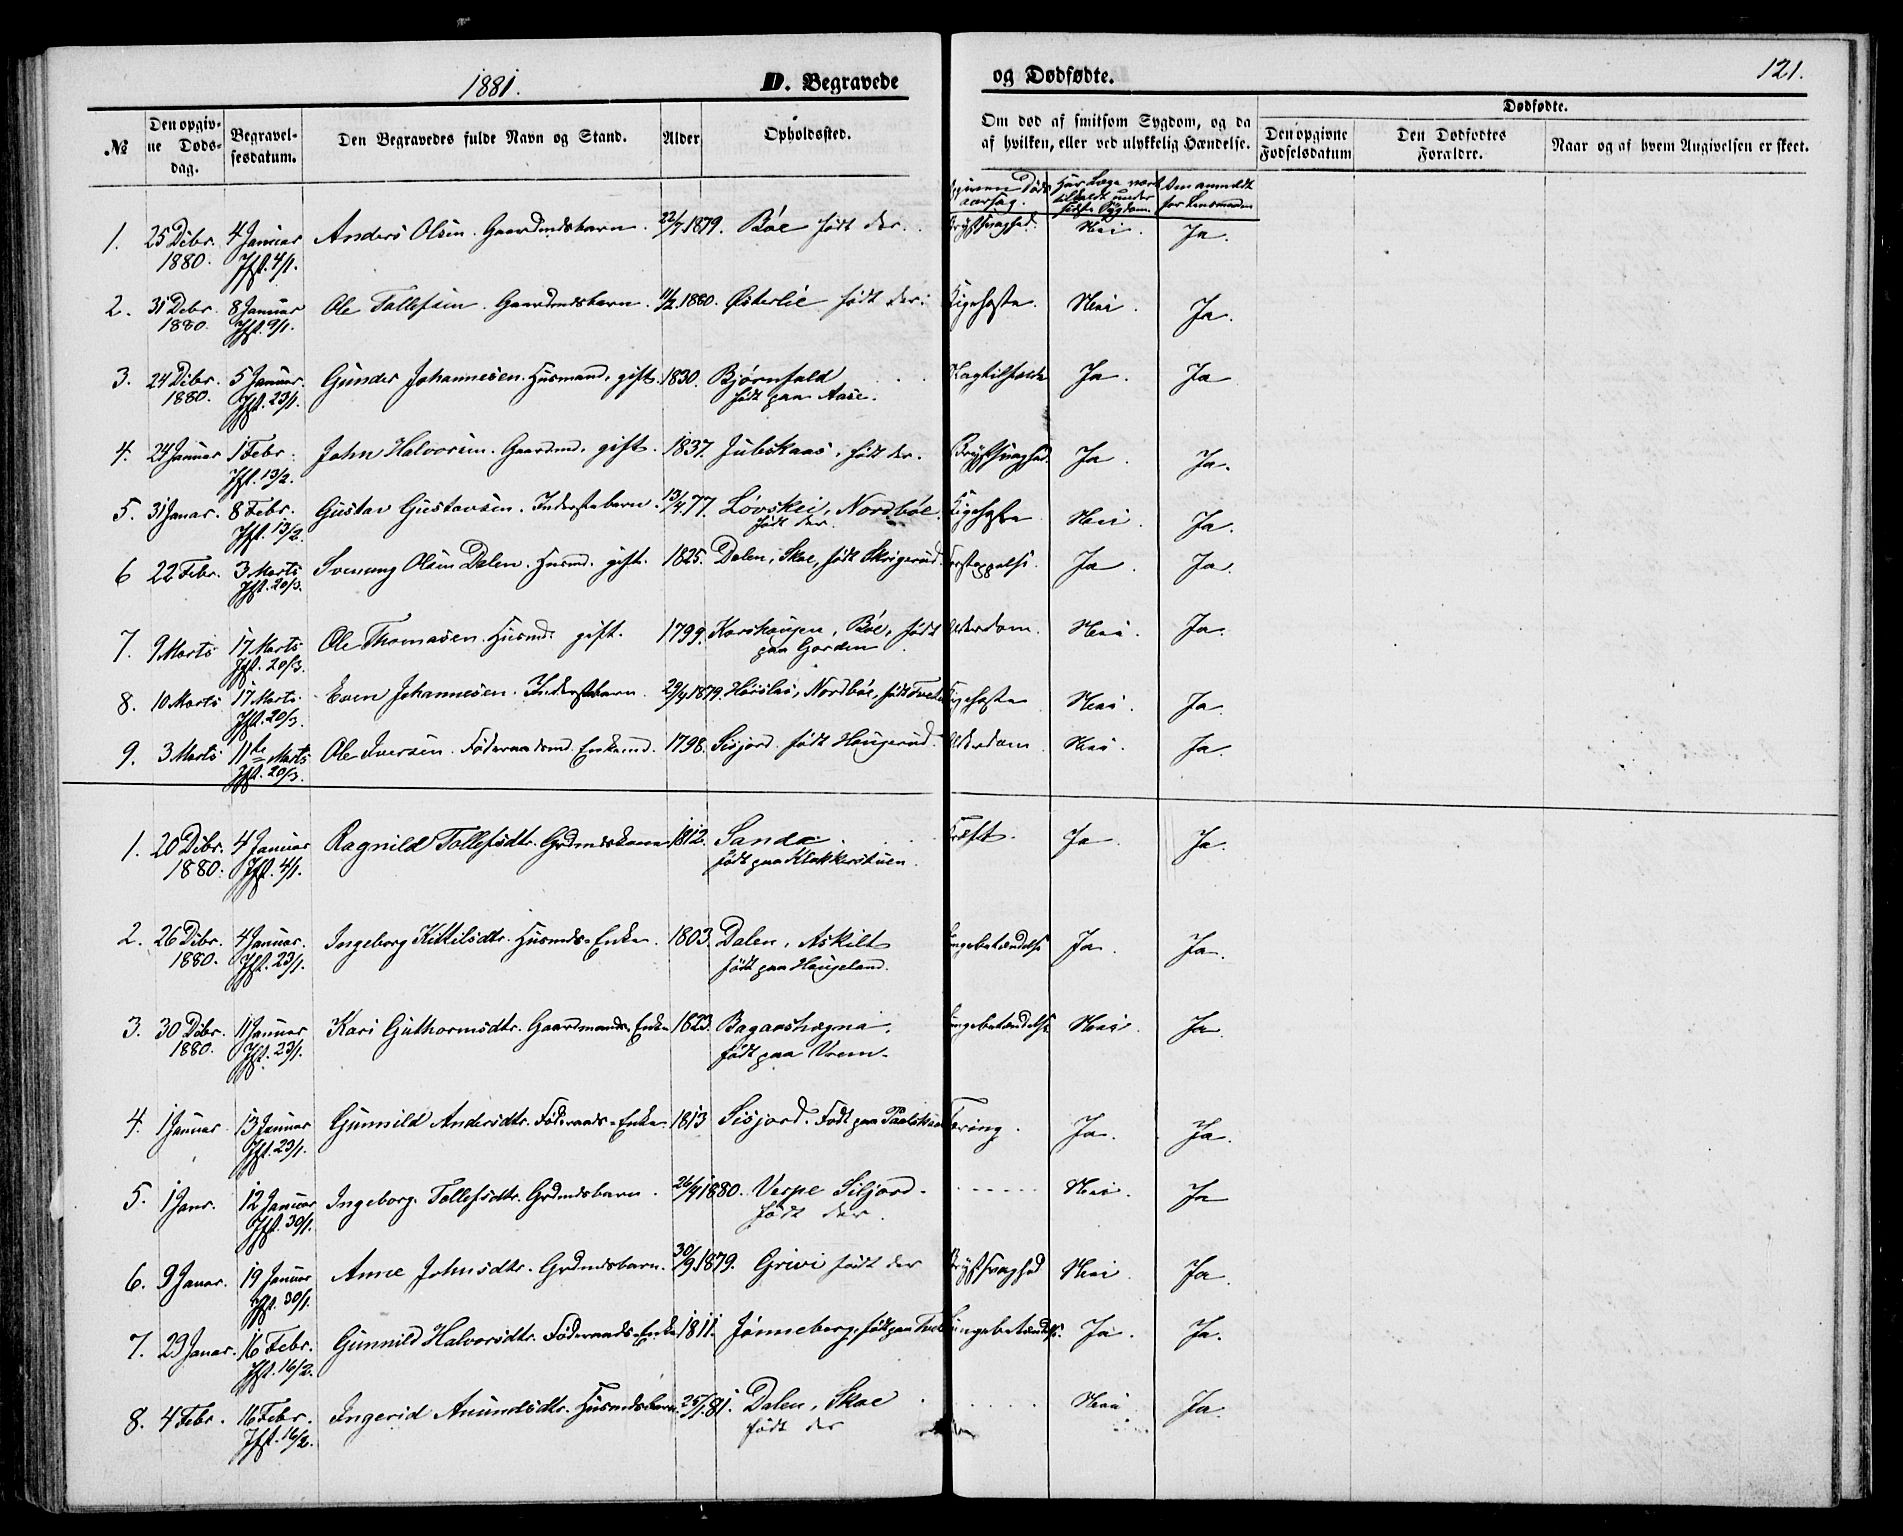 1881.
D. Begravede
og Dødfødte.
121.
№
Den opgiv-
ne Døds-
dag.
Begravel-
sesdatum.
Den Begravedes fulde Navn og Stand.
Alder
Opholdssted.
Om død af smitsom Sygdom, og da
af hvilken, eller ved ulykkelig Hændelse.
Dødfødte.
Den opgivne
Fødselsdatum
Den Dødfødtes
Forældre.
Naar og af hvem Angivelsen er skeet.
Døds
aarsag.
Har Læge vært
tilkaldt under
sidste Sygdom.
Om anmeldt
for Lensmanden
1. 25 Dcbr. 4 Januar Anders Olsen. Gaardmdsbarn. 22/7 1879. Bøe født der. Brystsvaghed. Nei. Ja.
1880. Jfst. 4/1.
2. 31 Dcbr. 8 Januar Ole Tollefsen. Gaardmdsbarn. 11/2 1880. Østerlie født der. Kigehoste. Nei. Ja.
1880. Jfst. 9/1.
3. 24 Dcbr. 5 Januar. Gunder Johannesen. Husmand, gift. 1830. Bjørnfald Ja. Ja
1880. Jfst. 23/1. født paa Aase.
4. 24 Januar 1 Febr. John Halvorsen. Gaardmd. gift. 1837. Julskaas, født der. Brystsvaghed. Ja. Ja.
Jfst. 13/2.
5. 31 Januar. 8 Febr. Gustav Gustavsen. Inderstebarn. 13/4 77. Løvskei, Nordbøe. Kigehoste Nei. Ja.
Jfst. 13/2. født der.
6 22 Febr. 3 Marts Svenung Olsen Dalen. Husmd. gift. 1825. Dalen, Skoe, født Skogerud. Forstoppelse. Ja. Ja.
Jfst. 20/3.
7. 9 Marts 17 Marts Ole Thomasen. Husmd. gift. 1799. Korshaugen, Bøe, født Alderdom. Nei. Ja.
Jfst. 20/3. paa Gorden
8. 10 Marts 17 Marts Even Johannesen. Inderstebarn. 29/4 1879. Nordbøe, født Tveten Kigehoste Nei. Ja.
Jfst. 20/3.
9. 3 Marts 11te Marts Ole Iversen. Føderaadsmd. Enkemd. 1798. Sisjord. født Haugerud. Alderdom Nei. Ja.
Jfst. 20/3.
1. 20 Dcbr. 4 Januar Ragnild Tollefsdtr. Grdmdskone 1812. Sanda. Kræft. Ja. Ja.
1880. Jfst. 4/1. født paa Klokkerstuen.
2. 26 Dcbr. 4 Januar. Ingeborg Kittilsdtr. Husmds-Enke. 1803. Dalen, Askilt Lungebetændelse Ja. Ja.
1880. Jfst. 23/1. født paa Haugeland.
3. 30 Dcbr. 11 Januar Kari Guthormsdtr. Gaardmands-Enke 1823. Bagaashægna. Lungebetændelse Nei. Ja.
1880. Jfst. 23/1. født paa Vrem.
4. 1 Januar. 13 Januar Gunnild Andersdtr. Føderaads-Enke. 1813 Sisjord. Født paa Tæring. Ja. Ja.
Jfst. 23/1.
5. 1 Janr. 12 Januar Ingeborg Tollefsdtr. Grdmdsbarn. 26/9 1880. Verpe Siljord. Nei. Ja
Jfst. 30/1. født der.
6. 9 Januar. 19 Januar Anne Johnsdtr. Grdmdsbarn. 30/9 1879. Grivi født der Brystsvaghed Nei. Ja.
Jfst. 30/1.
7. 29 Januar. 16 Febr. Gunnild Halvorsdtr. Føderaads-Enke 1811. Jønneberg, født paa Lungebetændelse. Ja. Ja.
Jfst. 16/2.
8. 4 Febr. 16 Febr. Ingerid Amundsdtr. Husmdsbarn. 25/1 81. Dalen, Skoe Nei Ja.
Jfst. 16/2. født der